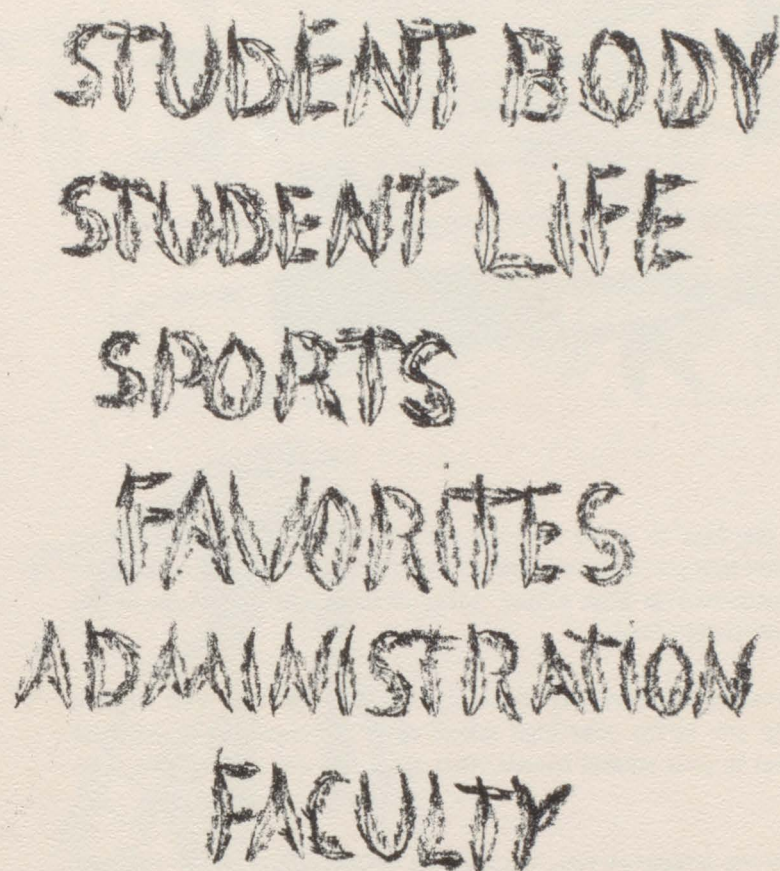 STUDENT BODY
STUDENT LIFE
SPORTS
FAVORITES
ADMINISTRATION
FACULTY